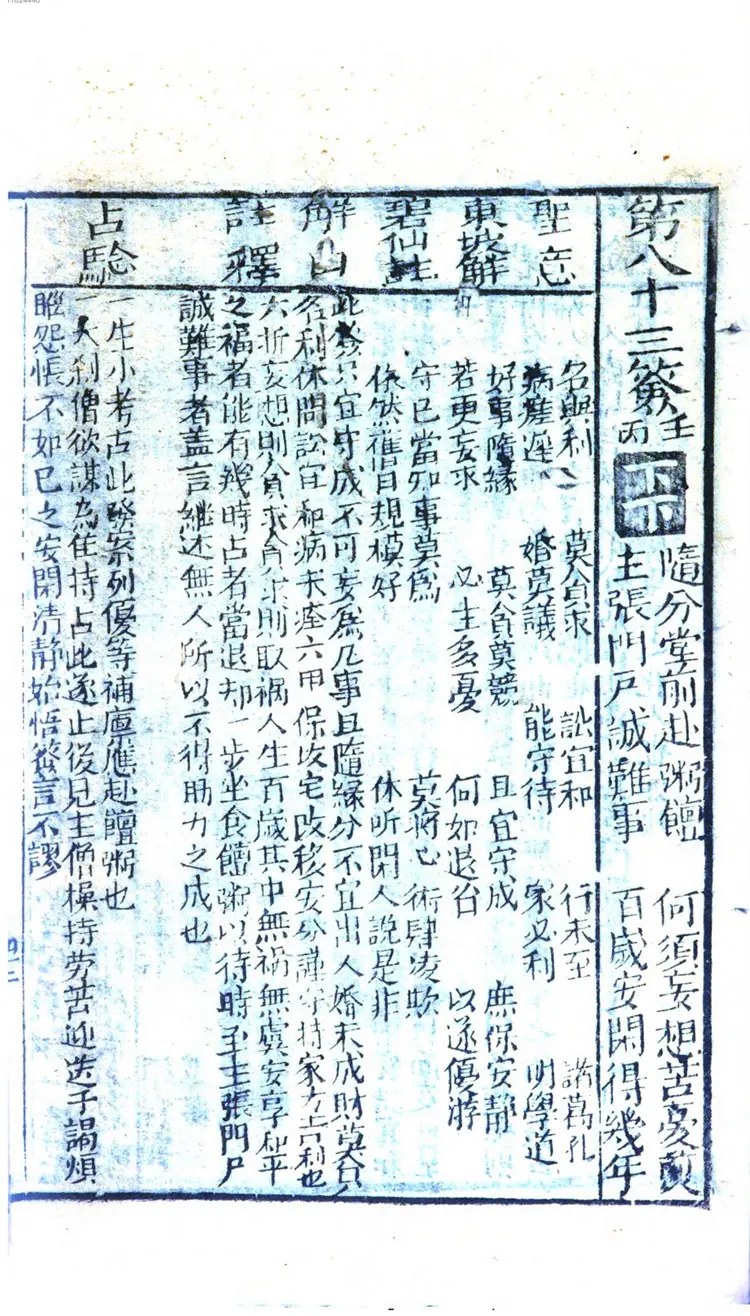 第八十三簽 壬丙 下下
隨分堂前赴粥饘 何須妄想苦憂煎
主張門戸誠難事 百歲安閑得幾年
聖意
名與利 莫貪求 訟宜和 行未至
病瘥遲 婚莫議 能守待 家必利 明學道
東坡解
好事隨緣 莫貪莫競 且宜守成 庶保安靜
若更妄求 必生多憂 何如退 以遂優游
碧仙註
守已當知事莫為 莫將心術肆凌欺
依然舊日規模好 休听閑人說是非
解曰
此簽只宜守成不可妄為凡事且隨緣分不宜出入婚未成財莫
名利休問訟宜和病未痊六甲保改宅改移安分謹守持家方吉利也
註釋
妄想則貪求貪求則取禍人生百歲其中無禍無虞安享和平
之福者能有幾時占者當退却一步坐食饘粥以待時至主張門戸
誠難事者盖言継述無人所以不得助力之成也
占驗
一生小考占此發案列優等補廩應赴饘粥也
一大刹僧欲謀為住持占此遂止後見主僧操持劳苦迎送干謁煩
怨悵不如已之安閑清靜始悟簽言不謬